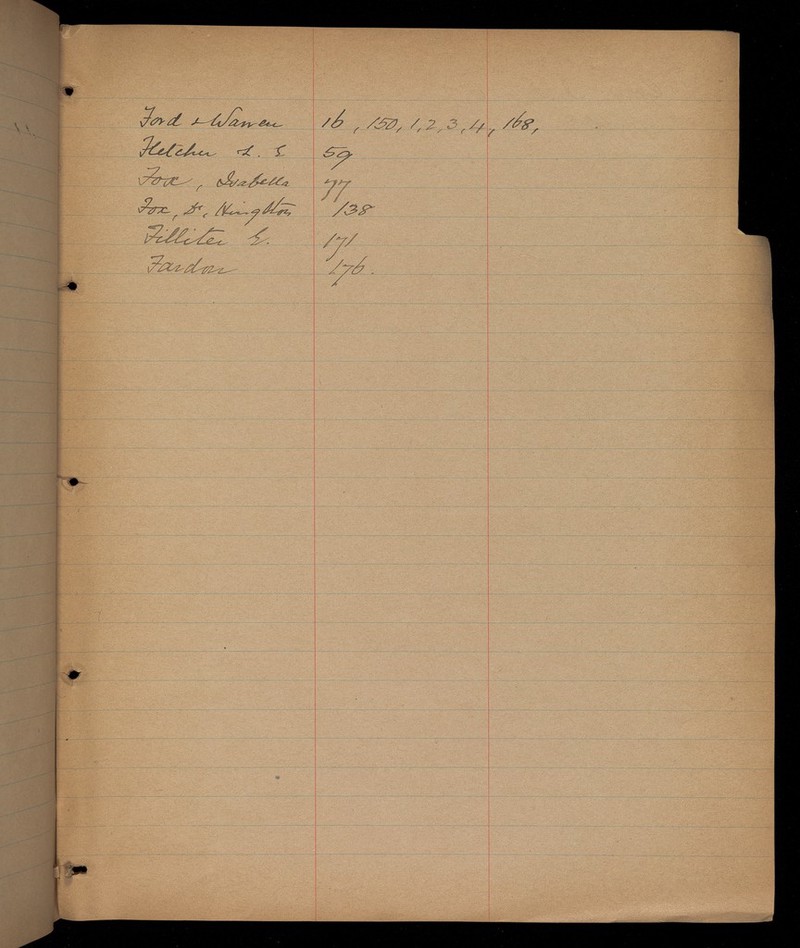 Ford & Warren 16, 150, 1, 2, 3, 4, 168,
Fletcher L. E. 59
Fox, Isabella 77
Fox, Dr, 138
Filliter E. 171
Fardon 176.